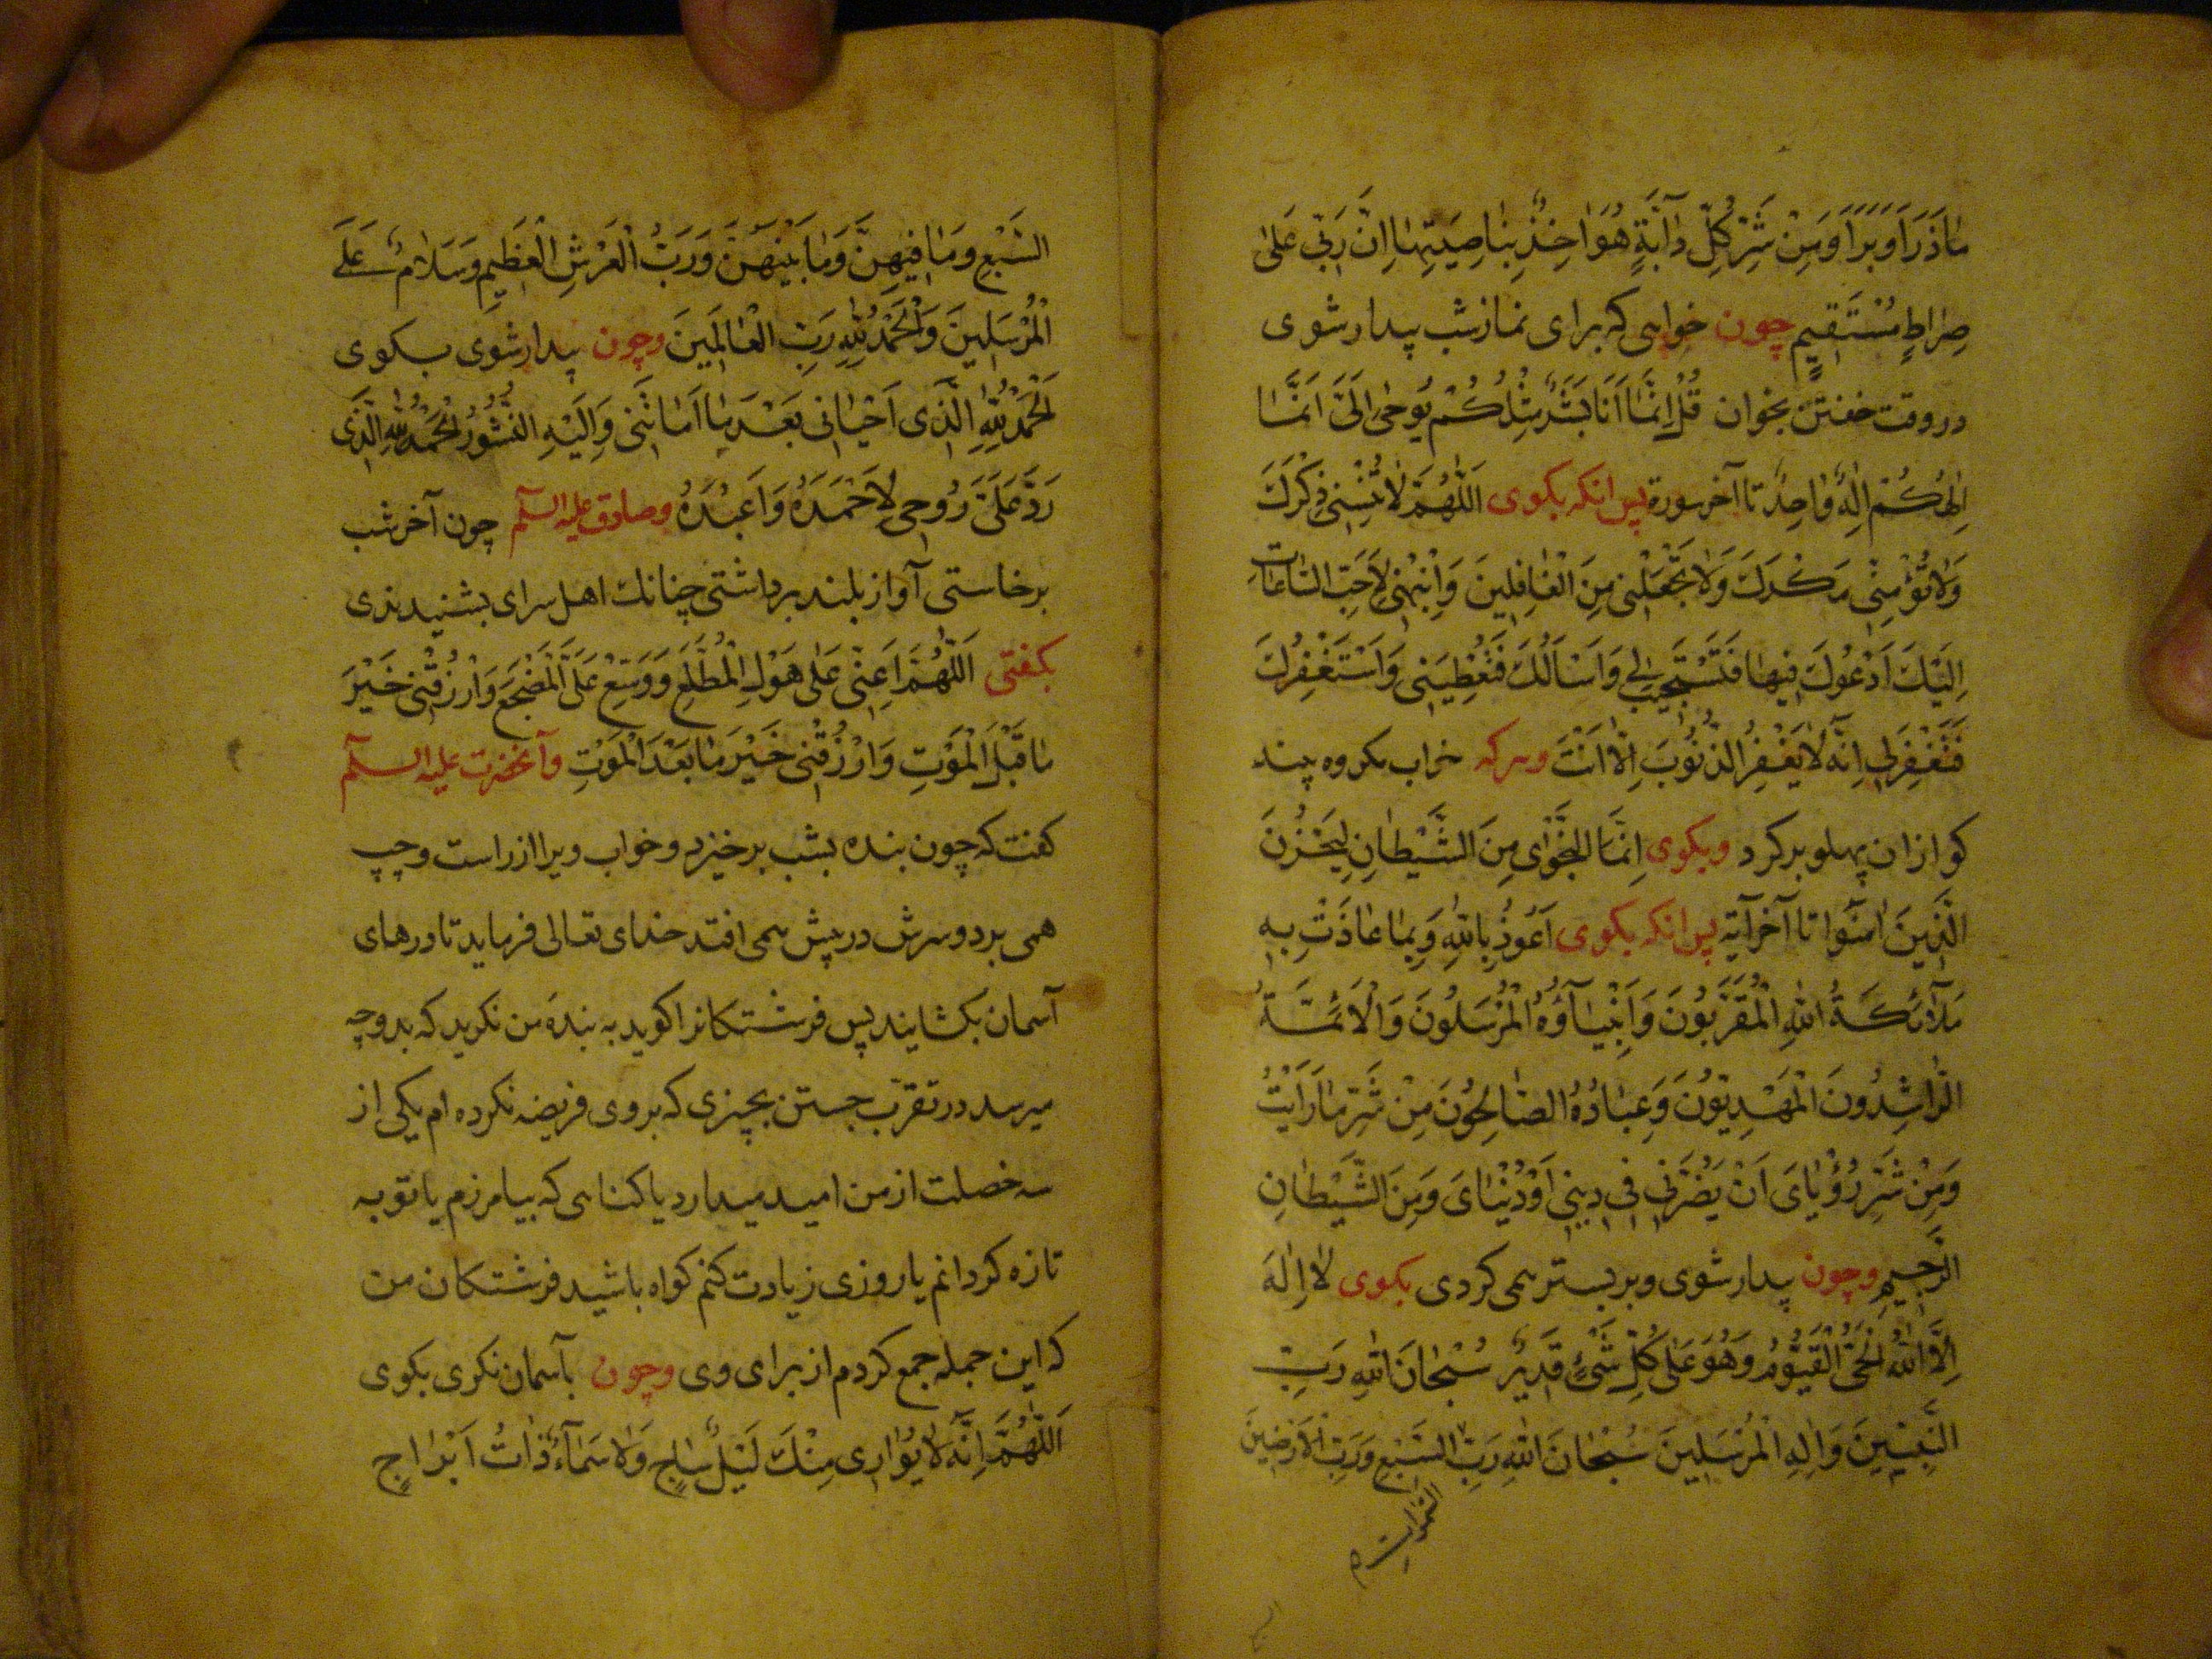 مٰا ذَرَأَ وَبَرَأَ وَمِنْ شَرِّ كُلِّ دٰآبَّةٍ هُوَ اٰخِذٌ بِنٰاصِيَتِهٰا اِنَّ رَبّي عَلىٰ
صِرٰاطٍ مُسْتَقيمٍ چون خواهى كه براى نماز شب بيدار شوى
در وقت خفتن بخوان قُلْ اِنَّمٰا اَنَا بَشَرٌ مِثْلُكُمْ يُوحىٰ اِلَىَّ اَنَّمٰا
اِلٰهُكُمْ اِلٰهٌ وٰاحِدٌ تا آخر سورة پس انكه بكوى اَللّٰهُمَّ لاٰ تُنْسِنى ذِكْرَكَ
وَلاٰ تُؤْمِنّى مَكْرَكَ وَلاٰ تَجْعَلْنى مِنَ الْغٰافِلينَ وَاَنْبِهْنى لِاَحَبِّ السّٰاعٰاتِ
اِلَيْكَ اَدْعُوكَ فيهٰا فَتَسْتَجيبَ لى وَاَسْاَلُكَ فَتُعْطِيَنى وَاَسْتَغْفِرُكَ
فَتَغْفِرَلى اِنَّهُ لاٰ يَغْفِرُ الذُّنُوبَ اِلّاٰ اَنْتَ وهركه خواب مكروه بيند
كو ازان پهلو بركرد وبكوى اِنَّمَا النَّجْوٰى مِنَ الشَّيْطٰانِ لِيَحْزُنَ
الَّذينَ اٰمَنُوا تا آخر آية پس انكه بكوى اَعُوذُ بِاللّٰهِ وَبِمٰا عٰاذَتْ بِهِ
مَلاٰئِكَةُ اللّٰهِ الْمُقَرَّبُونَ وَاَنْبِيٰآؤُهُ الْمُرْسَلُونَ وَالْاَئِمَّةُ
الرّٰاشِدُونَ الْمَهْدِيّوُنَ وَعِبٰادُهُ الصّٰالِحُونَ مِنْ شَرِّ مٰا رَاَيْتُ
وَمِنْ شَرِّ رُؤْيٰاىَ اَنْ يَضُرَّنى فى دينى اَوْ دُنْيٰاىَ وَمِنَ الشَّيْطٰانِ
الرَّجيمِ وچون بيدار شوى وبر بستر همى كردى بكوى لاٰ اِلٰهَ
اِلَّا اللّٰهُ الْحَىُّ الْقَيُّومُ وَهُوَ عَلىٰ كُلِّ شَىْءٍ قَديرٌ سُبْحٰانَ اللّٰهِ رَبِّ
النَّبِيّينَ وَاِلٰهِ الْمُرْسَلينَ سُبْحٰانَ اللّٰهِ رَبِّ السَّبْعِ وَرَبِّ الْاَرَضينَ
السَّبْعِ وَمٰا فيهِنَّ وَمٰا بَيْنَهُنَّ وَرَبِّ الْعَرْشِ الْعَظيمِ وَسَلاٰمٌ عَلَى
الْمُرْسَلينَ وَالْحَمْدُ لِلّٰهِ رَبِّ الْعٰالَمينَ وچون بيدار شوى بكوى
اَلْحَمْدُ لِلّٰهِ الَّذى اَحْيٰانى بَعْدَ مٰا اَمٰاتَنى وَاِلَيْهِ النُّشُورُ الْحَمْدُ لِلّٰهِ الَّذى
رَدَّ عَلَىَّ رُوحى لِاَحْمَدَهُ وَاَعْبُدَهُ وصادق عليه السلم چون آخر شب
برخاستى آواز بلند برداشتى چنانك اهل سراى بشنيدندى
بكفتى اَللّٰهُمَّ اَعِنّى عَلىٰ هَوْلِ الْمُطَّلَعِ وَوَسِّعْ عَلَىَّ الْمَضْجَعَ وَارْزُقْنى خَيْرَ
مٰا قَبْلَ الْمَوْتِ وَارْزُقْنى خَيْرَ مٰا بَعْدَ الْمَوْتِ وآنحضرت عليه السلم
كفت كه چون بنده بشب برخيزد وخواب ويرا از راست وچپ
همى برد وسرش در پيش همى افتد خداى تعالى فرمايد تا درهاى
آسمان بكشايند پس فرشتكانرا كويد به بندهٔ من نكريد كه بدو چه
ميرسد در تقرّب جستن بچيزى كه بر وى فريضه نكرده ام يكى از
سه خصلت از من اميد ميدارد يا كناهى كه بيامرزم يا توبه
تازه كردانم يا روزى زيادت كنم كواه باشيد فرشتكان من
كه اين جمله جمع كردم از براى وى وچون بآسمان نكرى بكوى
اَللّٰهُمَّ اِنَّهُ لاٰ يُوٰارى مِنْكَ لَيْلٌ سٰاجٍ وَلاٰ سَمٰآءٌ ذٰاتُ اَبْرٰاجٍ